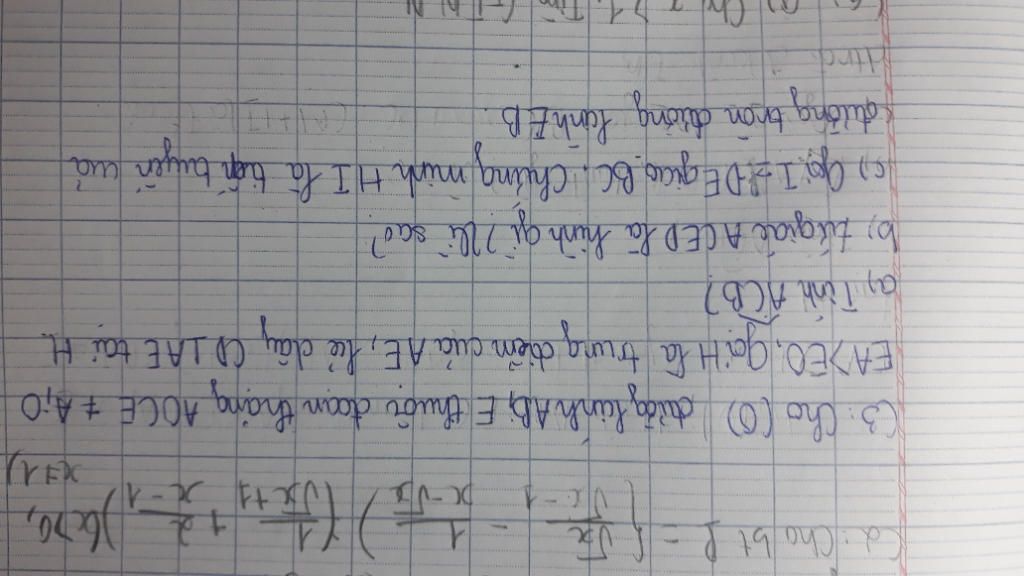 C2: Cho bt P = (√x / √x - 1 - 1 / x - √x) (1 / √x + 1 + 2 / x - 1) (x > 0,
x ≠ 1)
C3: Cho (O) đường kính AB, E thuộc đoạn thẳng AO (E ≠ A, O
EA > EO, Gọi H là trung điểm của AE, kẻ dây CD ⊥ AE tại H.
a, Tính ACB?
b) tứ giác ACED là hình gì? Vì sao?
c) Gọi I = DE giao BC. Chứng minh HI là tiếp tuyến của
đường tròn đường kính EB.